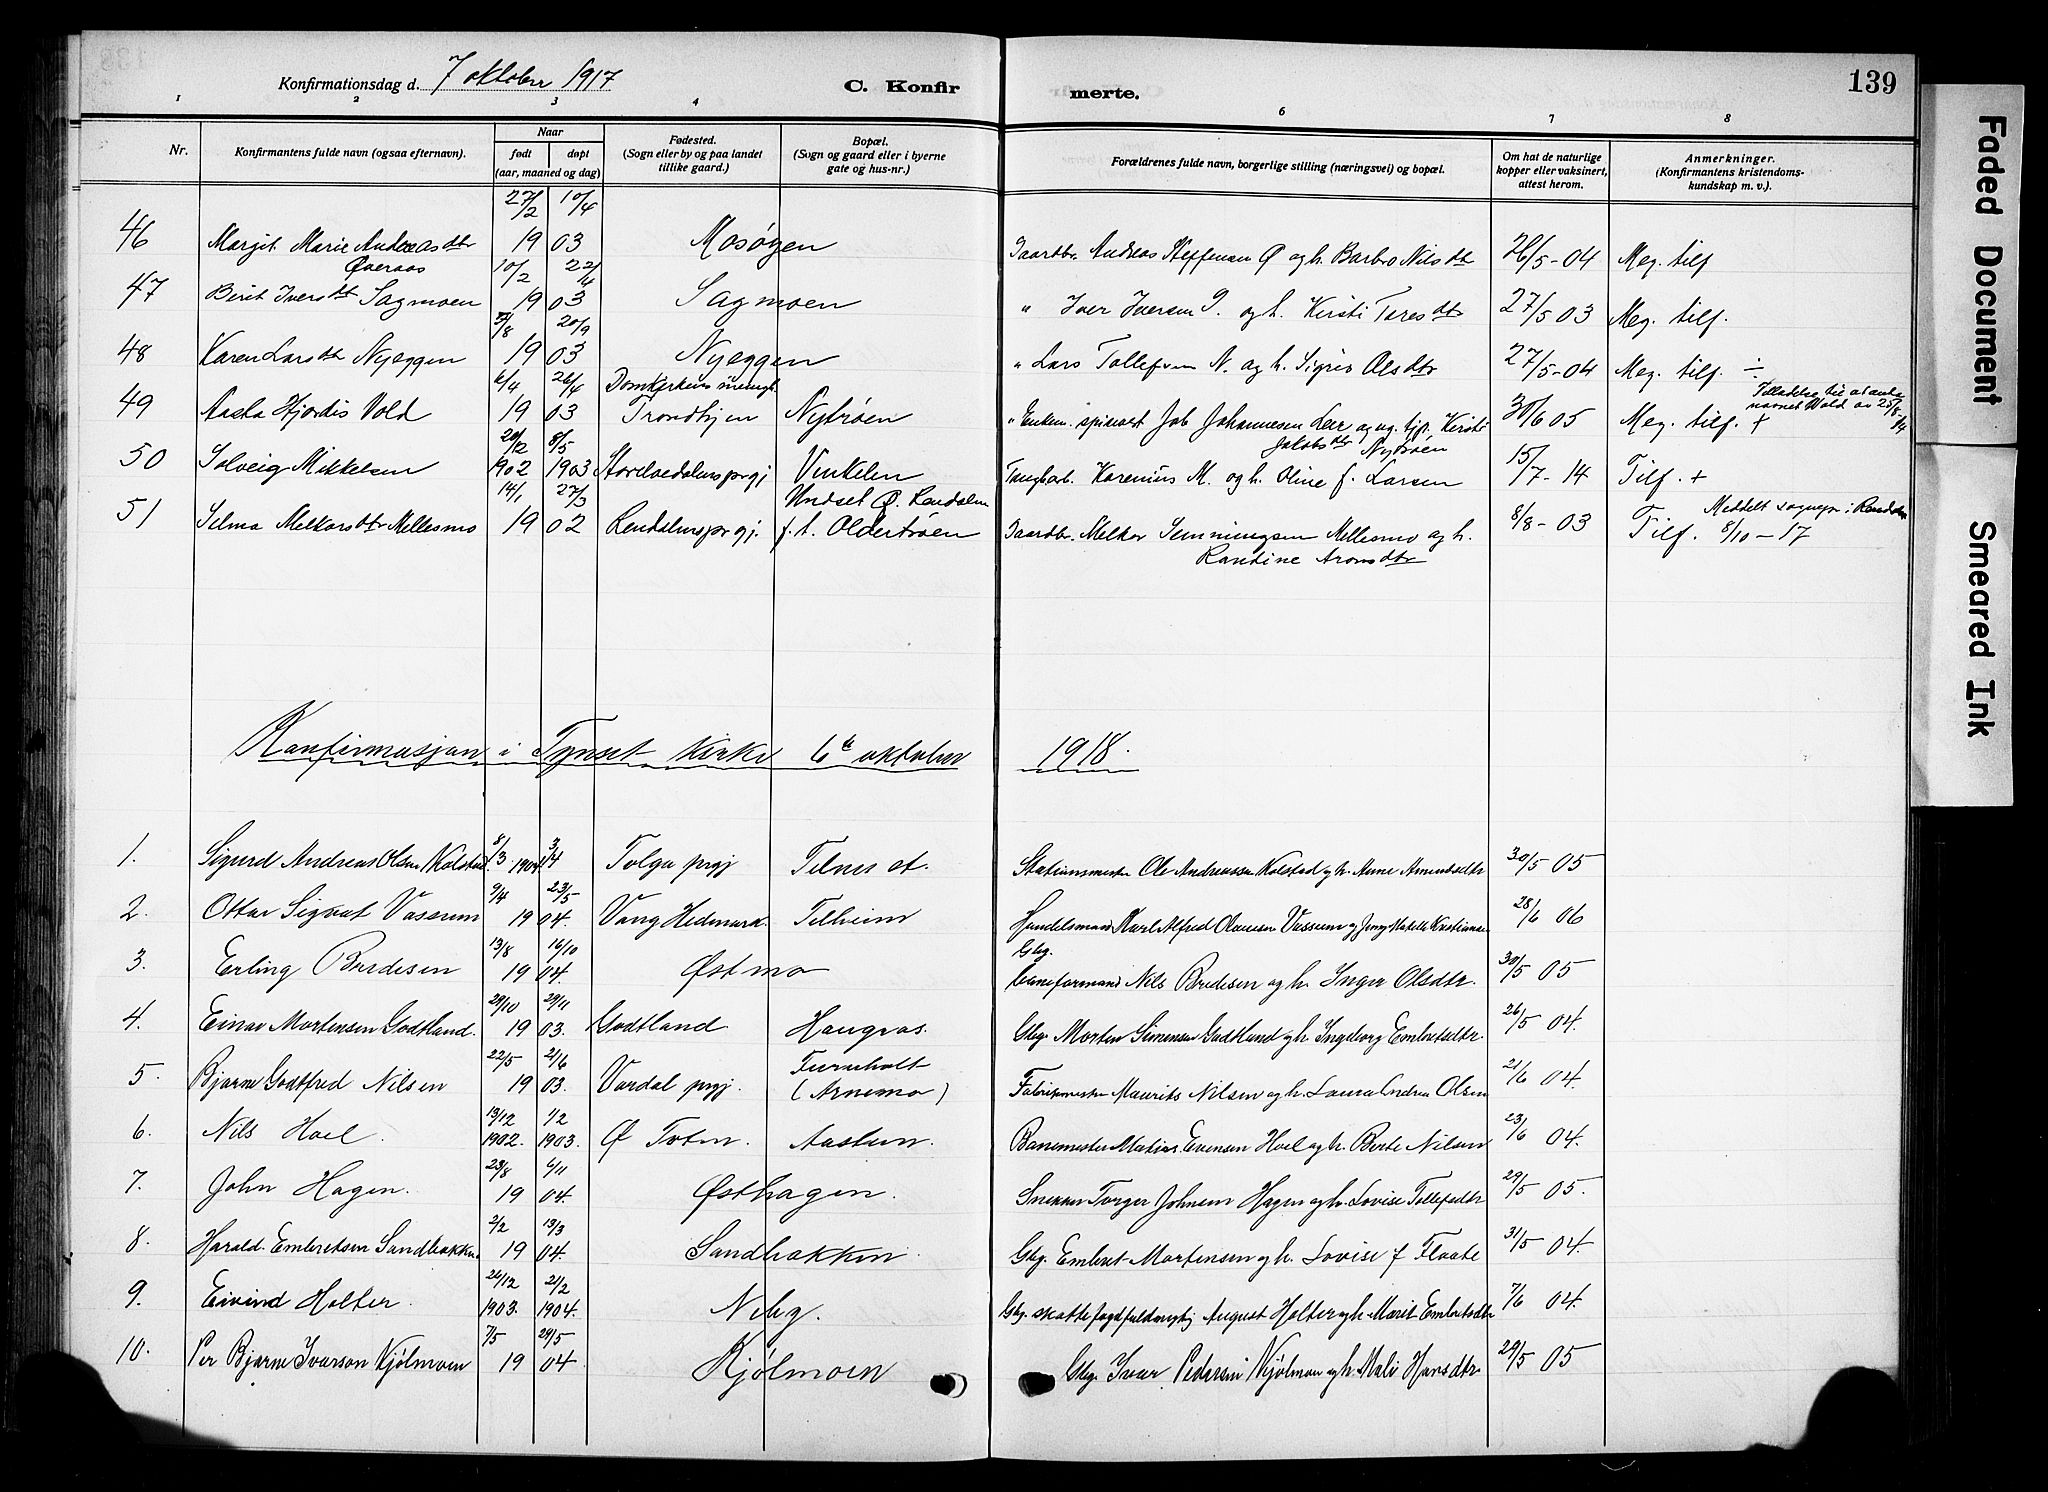 139
Konfirmationsdag d. 7 oktober 1917 C. Konfir merte.
1 2 3 4 6 7 8
Nr. Konfirmantens fulde navn (ogsaa efternavn). Naar født døpt (aar, maaned og dag) Fødested. (Sogn eller by og paa landet tillike gaard.) Bopæl. (Sogn og gaard eller i byerne gate og hus-nr.) Forældrenes fulde navn, borgerlige stilling (næringsvei) og bopæl. Om hat de naturlige kopper eller vaksinert, attest herom. Anmerkninger. (Konfirmantens kristendoms-kundskap m. v.).
27/2 10/4
46 Margit Marie Andreasdtr 19 03 Mosøyen Gaardbr. Andreas Steffensen Ø og h. Barbro Nilsdtr 26/5-04 Meg. tilf
Øveraas 10/2 22/4
47 Berit Iversdtr Sagmoen 19 03 Sagmoen " Iver Iversen S. og h. Kirsti Toresdtr 27/5 03 Meg. tilf.
5/8 20/9
48 Karen Larsdtr Nyeggen 19 03 Nyeggen " Lars Tollefsen N. og h. Sigrid Olsdtr 27/5-04 Meg. tilf. ÷
6/4 26/4 Domkirkens menigh.
49 Aasta Hjørdis Vold 19 03 Trondhjem Nybrøen Job Johannesen Leir og ug. tjp. Kirsti 30/6 05 Meg. tilf. +
Jakobsdtr Nybrøen
20/12 8/5
50 Solveig Mikkelsen 1902 1903 Storelvedalens prgj Vinkelen Karenius M. og h. Oline f. Larsen 15/7-14 Tilf. +
14/1 27/3 Undset Ø. Rendalen
51 Selma Melkorsdtr Mellesmo 19 02 Rendalens prgj. f. t. Oldertrøen Gaardbr. Melkor Semmingsen Mellesmo og h. 8/8-03 Tilf. 8/10-17
Randine Aronsdtr
Konfirmasjon i Tynset kirke 6te oktober 1918.
1. Sigurd Andreas Olsen Kolstad 8/3 1904 3/4 Tolga prgj Telnes st. Stationsmester Ole Andreassen Kolstad og h. Anne Amundsdtr 30/5 05
9/4 23/5
2. Ottar Sigvat Vassum 19 04. Vang Hedmark Telheim Handelsmand Karl Alfred Olaussen Vassum og Jenny Matilde Kristiansen 28/6 06
13/8 16/10 Gbg.
3. Erling Bredesen 19 04. Østmo baneformand Nils Bredesen og h. Inger Olsdtr. 30/5 05
29/10 29/11
4. Einar Mortensen Godtland. 19 03. Godtland Haugvas. Gbg. Morten Simensen Godtland og h. Ingeborg Embretsdtr. 26/5 04.
22/5 21/6 Furuholt
5. Bjarne Godtfred Nilsen 19 03. Vardal prgj. (Arnemo) Fabrikmester Maurits Nilsen og h. Laura Andrea Olsen 21/6 04.
13/12 1/2
6. Nils Hoel. 1902. 1903. Ø Toten. Aasheim. Banemester Matias Evensen Hoel og h. Berte Nilsen 23/6 04.
23/8 6/11
7. John Hagen. 19 04. Østhagen. Snekker Torger Johnsen Hagen og h. Lovise Tollefsdtr 29/5 05.
2/2 13/3
8. Harald Embretsen Sandbakken 19 04. Sandbakken Gbg. Embret Mortensen og h. Lovise f Flaate 31/5 04.
24/12 21/2
9. Eivind Holter. 1903. 1904. Neby. Gbg. skattefogdfuldmegtig August Holter og h. Marit Embretsdtr 7/6 04.
7/5 29/5
10. Per Bjarne Ivarson Kjølmoen 19 04. Kjølmoen Gbg. Ivar Pedersen Kjølmoen og h. Mali Hansdtr 29/5 05
Faded Document
Smeared Ink